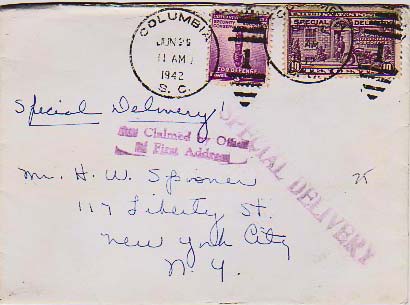 COLUMBIA
JUN 25
11 AM
1942
S. C.
FOR DEFENSE
UNITED STATES POSTAGE
SPECIAL DELIVERY
10 TEN CENTS 10
Special Delivery!
Claimed by Office
of First Address
SPECIAL DELIVERY
Mr. H. W. Spisner
25
117 Liberty St.
New York City
N. Y.